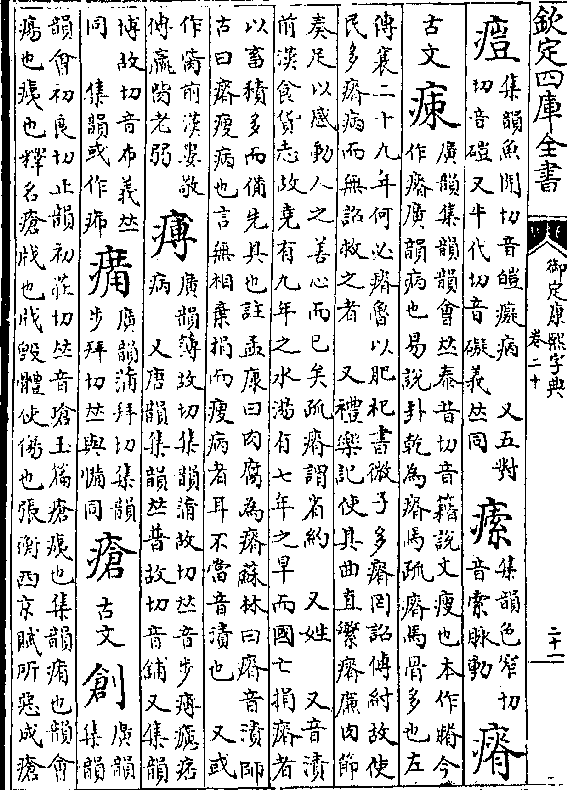 欽定四庫全書
御定康熙字典
卷二十
二十一
𤷾
集韻魚開切音皚癡病 又五對
切音磑又牛代切音礙義𠀤同
瘶
集韻色窄切
音索脈動
瘠
古文
𤶠
廣韻集韻韻會𠀤秦昔切音籍說文瘦也本作膌今
作瘠廣韻病也易說卦乾為瘠馬疏瘠馬骨多也左
傳襄二十九年何必瘠魯以肥杞書微子多瘠罔詔傳紂故使
民多瘠病而無詔救之者 又禮樂記使其曲直繁瘠廉肉節
奏足以感動人之善心而已矣疏瘠謂省約 又姓 又音漬
前漢食貨志故堯有九年之水湯有七年之旱而國亡捐瘠者
以畜積多而備先具也註孟康曰肉腐為瘠蘇林曰瘠音漬師
古曰瘠瘦病也言無相棄捐而瘦病者耳不當音漬也 又或
作𦠄前漢婁敬
傳羸胔老弱
㾟
廣韻薄故切集韻蒲故切𠀤音步㾟癊痞
病 又唐韻集韻𠀤普故切音鋪又集韻
博故切音布義𠀤
同 集韻或作㾺
㾱
廣韻蒲拜切集韻
步拜切𠀤與憊同
瘡
古文
創
廣韻
集韻
韻會初良切正韻初莊切𠀤音瑲玉篇瘡痍也集韻痏也韻會
瘍也痍也釋名瘡戕也戕毀體使傷也張衡西京賦所惡成瘡